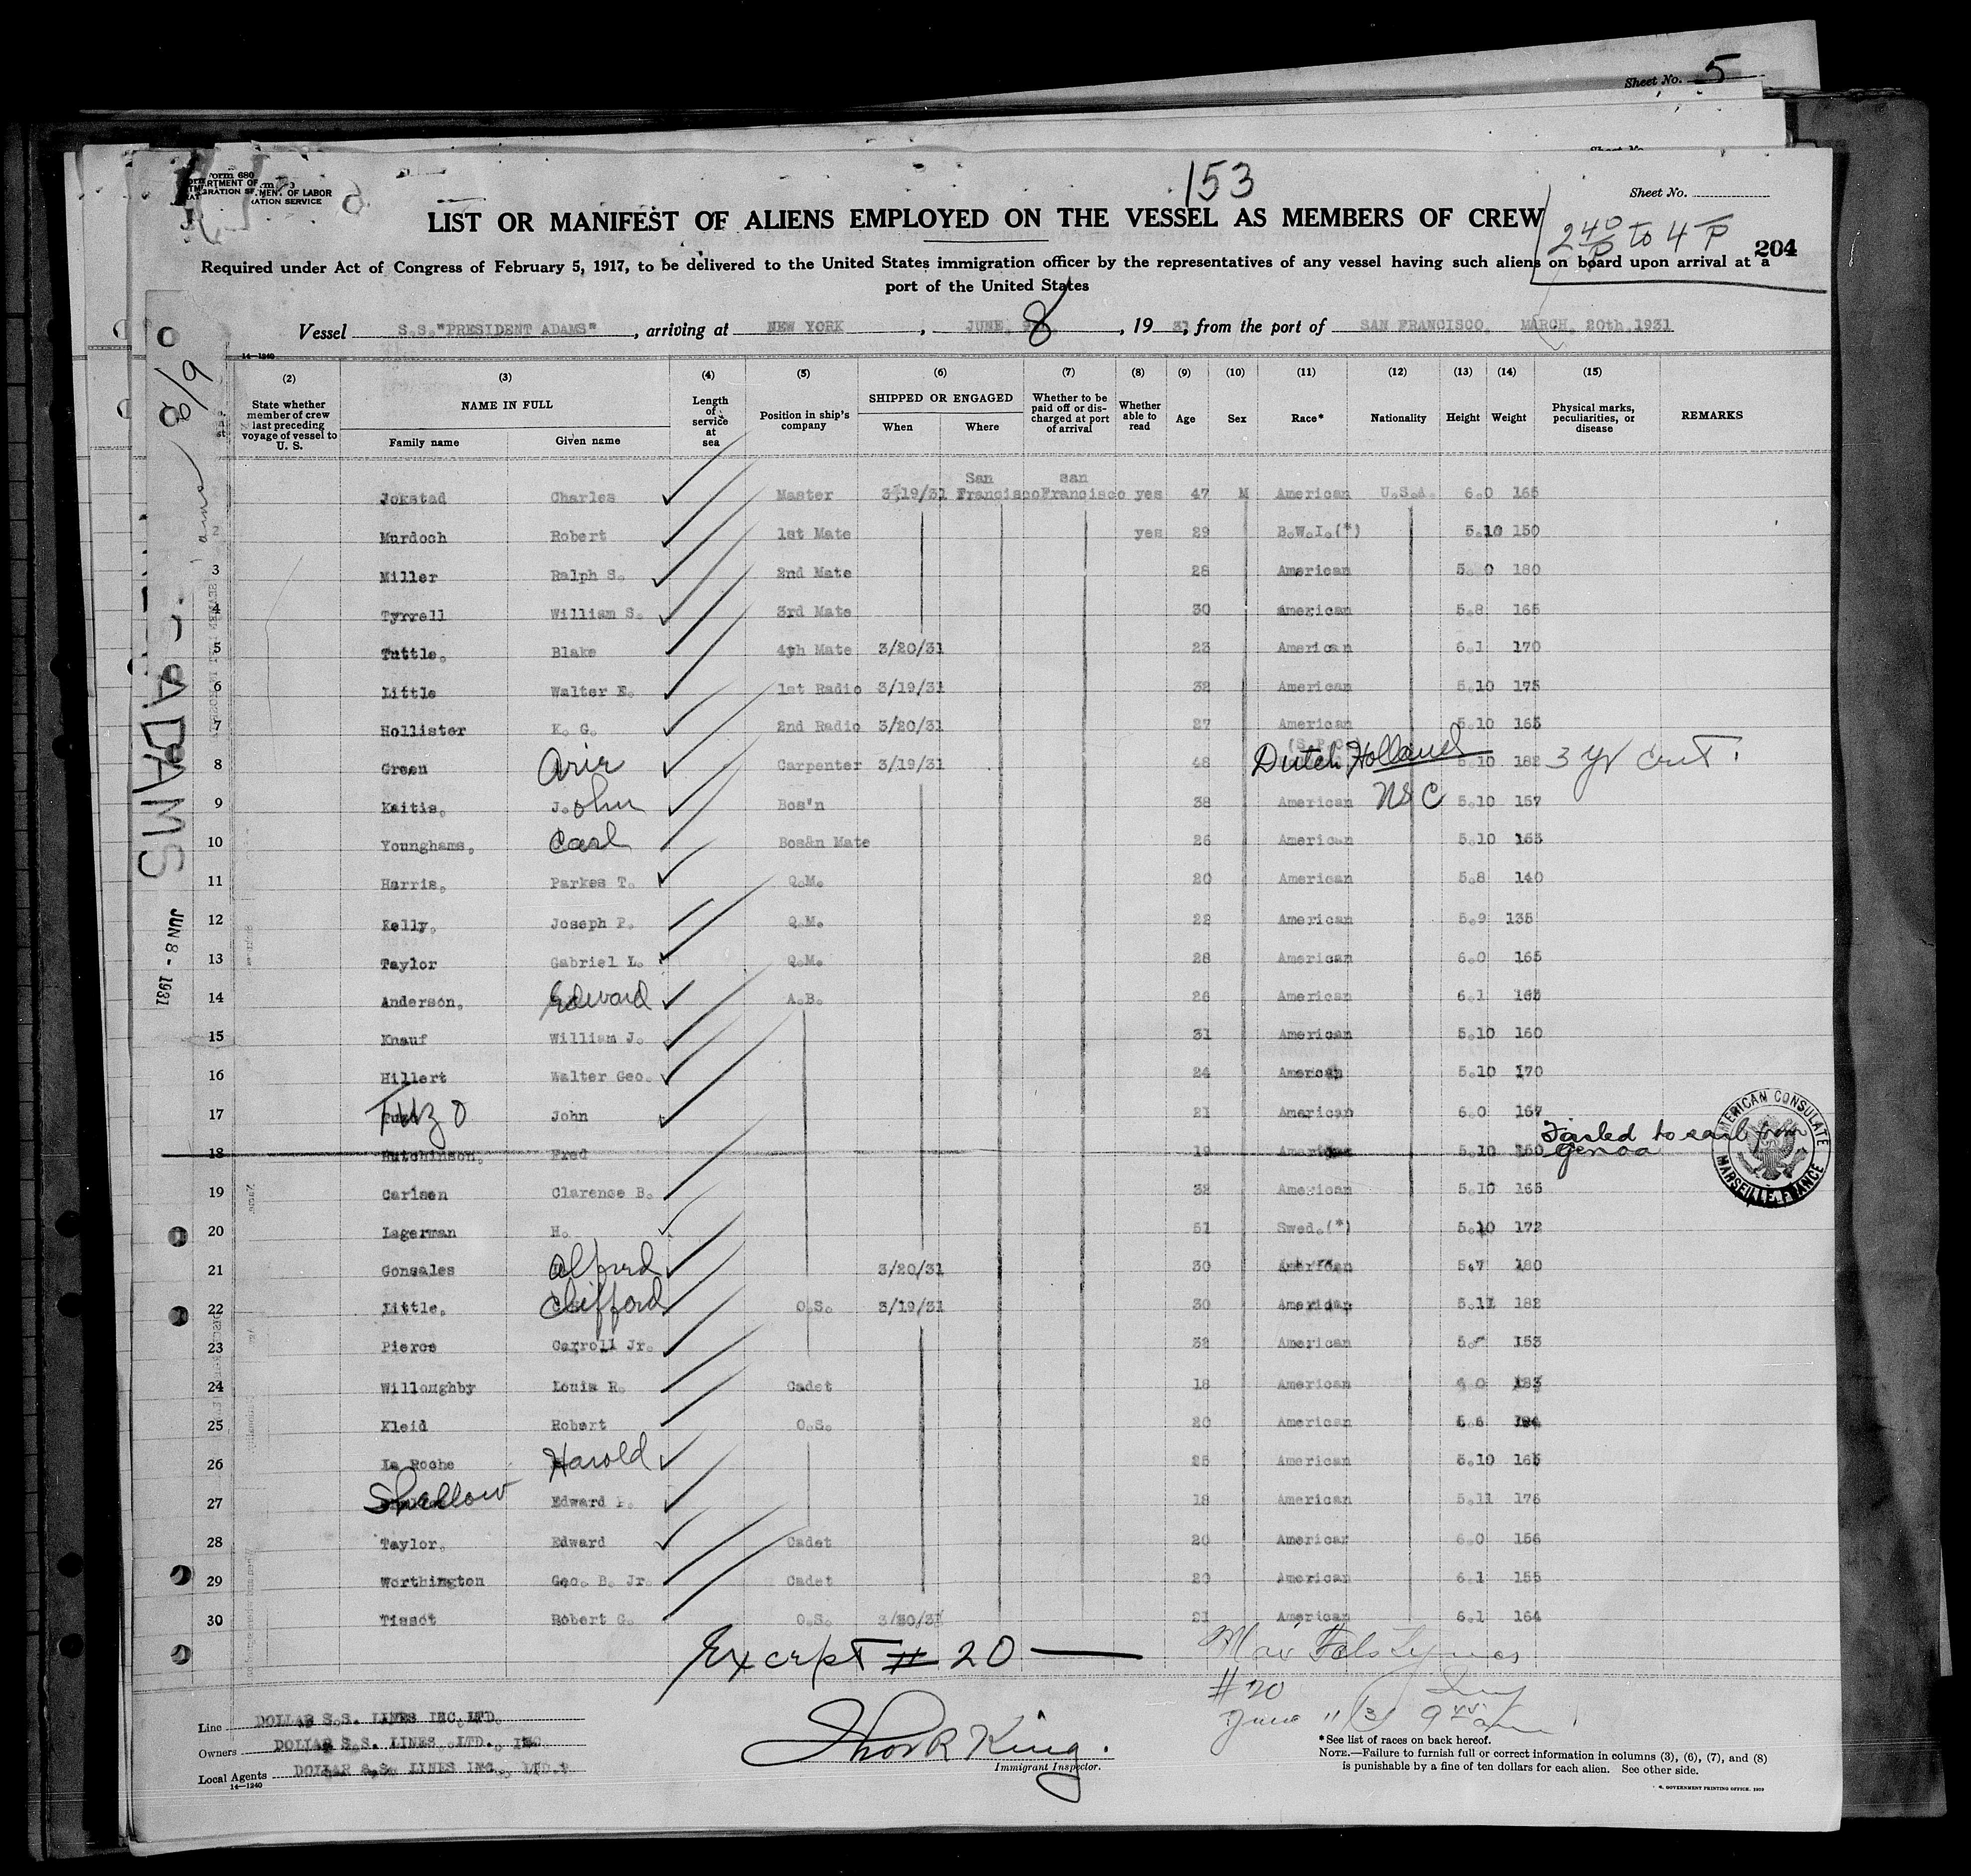 Sheet No. 5
Sheet No.
153
Sheet No.
LIST OR MANIFEST OF ALIENS EMPLOYED ON THE VESSEL AS MEMBERS OF CREW
2 40 P to 4 P
204
Required under Act of Congress of February 5, 1917, to be delivered to the United States immigration officer by the representatives of any vessel having such aliens on board upon arrival at a
port of the United States
Vessel S.S."PRESIDENT ADAMS", arriving at NEW YORK, JUNE, 8, 1931, from the port of SAN FRANCISCO, MARCH, 20th, 1931
14—1240
(2) (3) (4) (5) (6) (7) (8) (9) (10) (11) (12) (13) (14) (15)
State whether member of crew last preceding voyage of vessel to U. S.
NAME IN FULL
Family name Given name
Length of service at sea
Position in ship's company
SHIPPED OR ENGAGED
When Where
Whether to be paid off or discharged at port of arrival
Whether able to read
Age Sex Race* Nationality Height Weight
Physical marks, peculiarities, or disease
REMARKS
Jokstad Charles Master 3/19/31 San Francisco san Francisco yes 47 M American U.S.A. 6.0 165
2 Murdoch Robert 1st Mate yes 29 B.W.I.(*) 5.10 150
3 Miller Ralph S. 2nd Mate 28 American 5. 0 180
4 Tyrrell William S. 3rd Mate 30 American 5.8 165
5 Tuttle, Blake 4th Mate 3/20/31 23 American 6.1 170
6 Little Walter E. 1st Radio 3/19/31 32 American 5.10 175
7 Hollister K. G. 2nd Radio 3/20/31 27 American 5.10 165
8 Green Arie Carpenter 3/19/31 48 Dutch Holland 5.10 182 3 yr cert.
9 Kaitis, John Bos'n 38 American NSC 5.10 157
10 Younghams, Carl Bosan Mate 26 American 5.10 155
11 Harris, Parkes T. Q.M. 20 American 5.8 140
12 Kelly, Joseph P. Q.M. 22 American 5.9 135
13 Taylor Gabriel L. Q.M. 28 American 6.0 165
14 Anderson, Edward A.B. 26 American 6.1 165
15 Knauf William J. 31 American 5.10 160
16 Hillert Walter Geo. 24 American 5.10 170
17 Tuzo John 21 American 6.0 167
18 Hutchinson, Fred 19 American 5.10 150 Failed to sail from Genoa
AMERICAN CONSULATE MARSEILLE, FRANCE
19 Carlsen Clarence B. 32 American 5.10 165
20 Lagerman H. 51 Swed.(*) 5.10 172
21 Gonsales Alfred 3/20/31 30 American 5.7 180
22 Little, Clifford O.S. 3/19/31 30 American 5.11 182
23 Pierce Carroll Jr. 32 American 153
24 Willoughby Louis R. Cadet 18 American 6 0 183
25 Kleid Robert O.S. 20 American 5.6
26 La Roche Harold 25 American 5.10 165
27 Shellow Edward 18 American 5.11 175
28 Taylor, Edward Cadet 20 American 6.0 156
29 Worthington Geo. B. Jr. Cadet 20 American 6.1 155
30 Tissot Robert G. O.S. 21 American 6.1 164
ADAMS
JUN 8 - 1931
6/8
Except # 20
#20
June
Line DOLLAR S.S. LINES INC. LTD.
Owners DOLLAR S.S. LINES LTD., INC
Local Agents DOLLAR S.S. LINES INC., LTD.
14—1240
King.
Immigrant Inspector.
*See list of races on back hereof.
NOTE.—Failure to furnish full or correct information in columns (3), (6), (7), and (8)
is punishable by a fine of ten dollars for each alien. See other side.